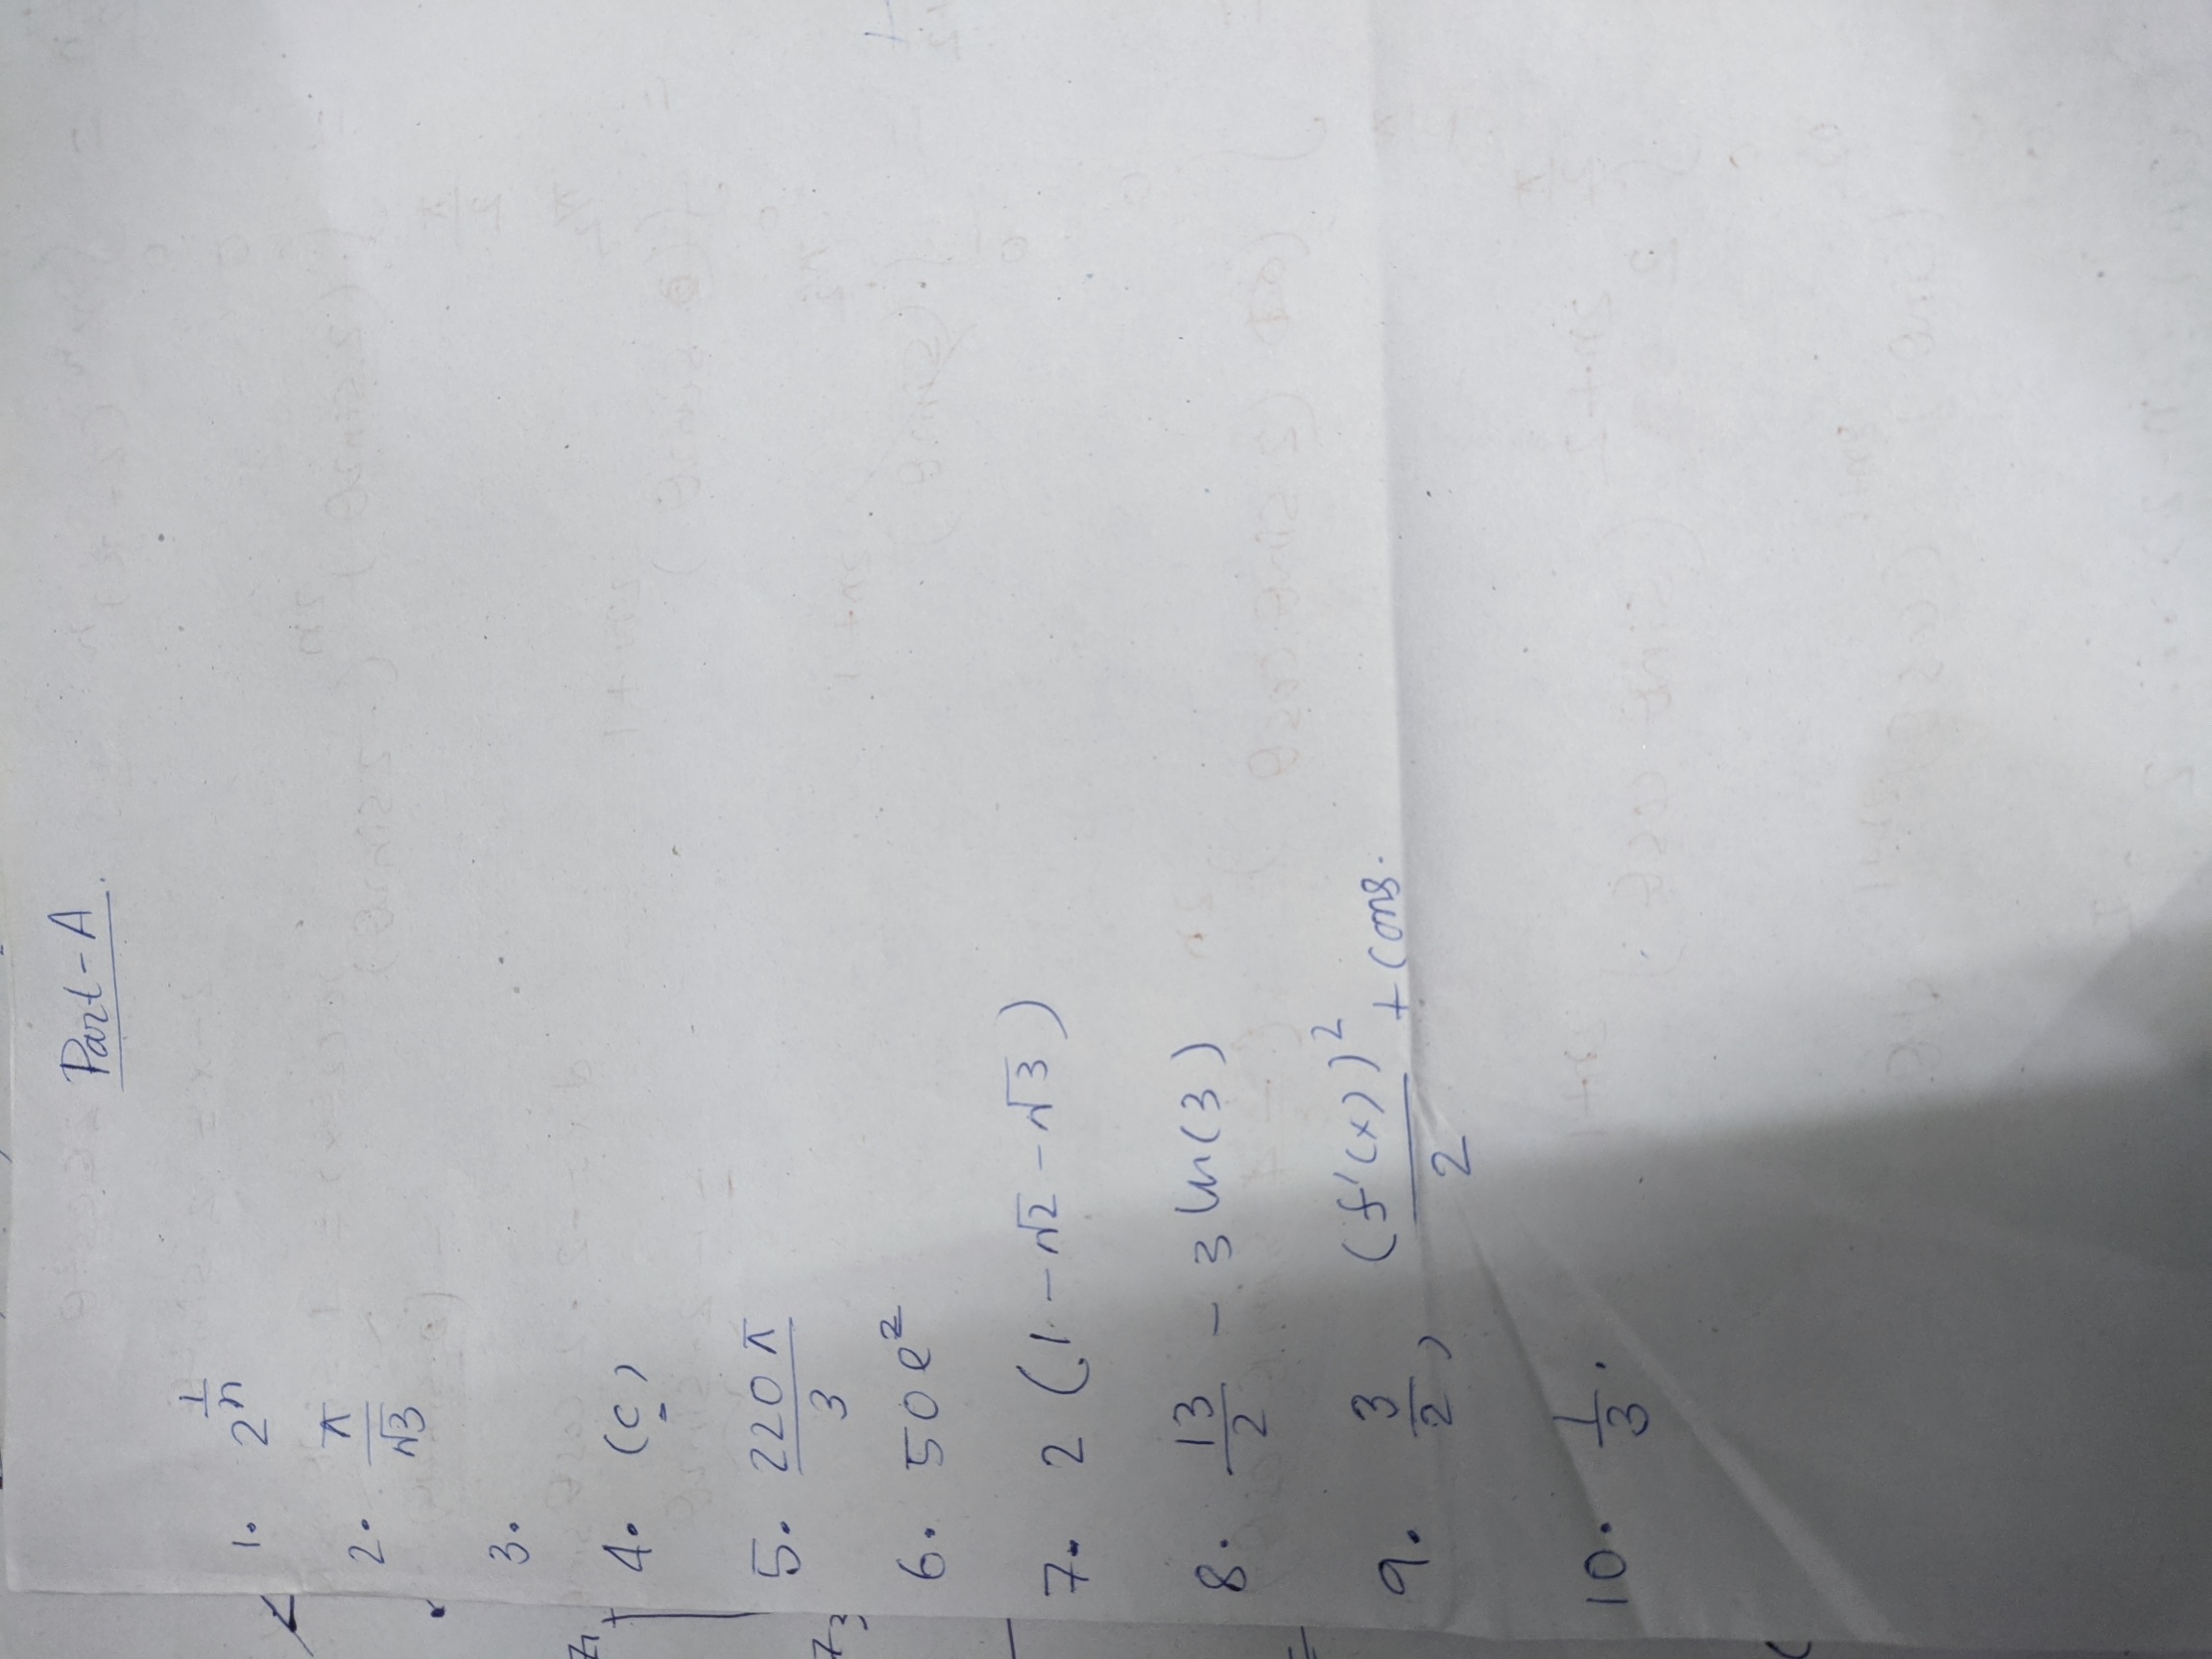 Part-A.
1. 2^(1/n)
2. π/√3
3.
4. (c)
5. 220π/3
6. 50e²
7. 2(1-√2-√3)
8. 13/2 - 3ln(3)
9. 3/2, (f'(x))²/2 + Cons.
10. 1/3.